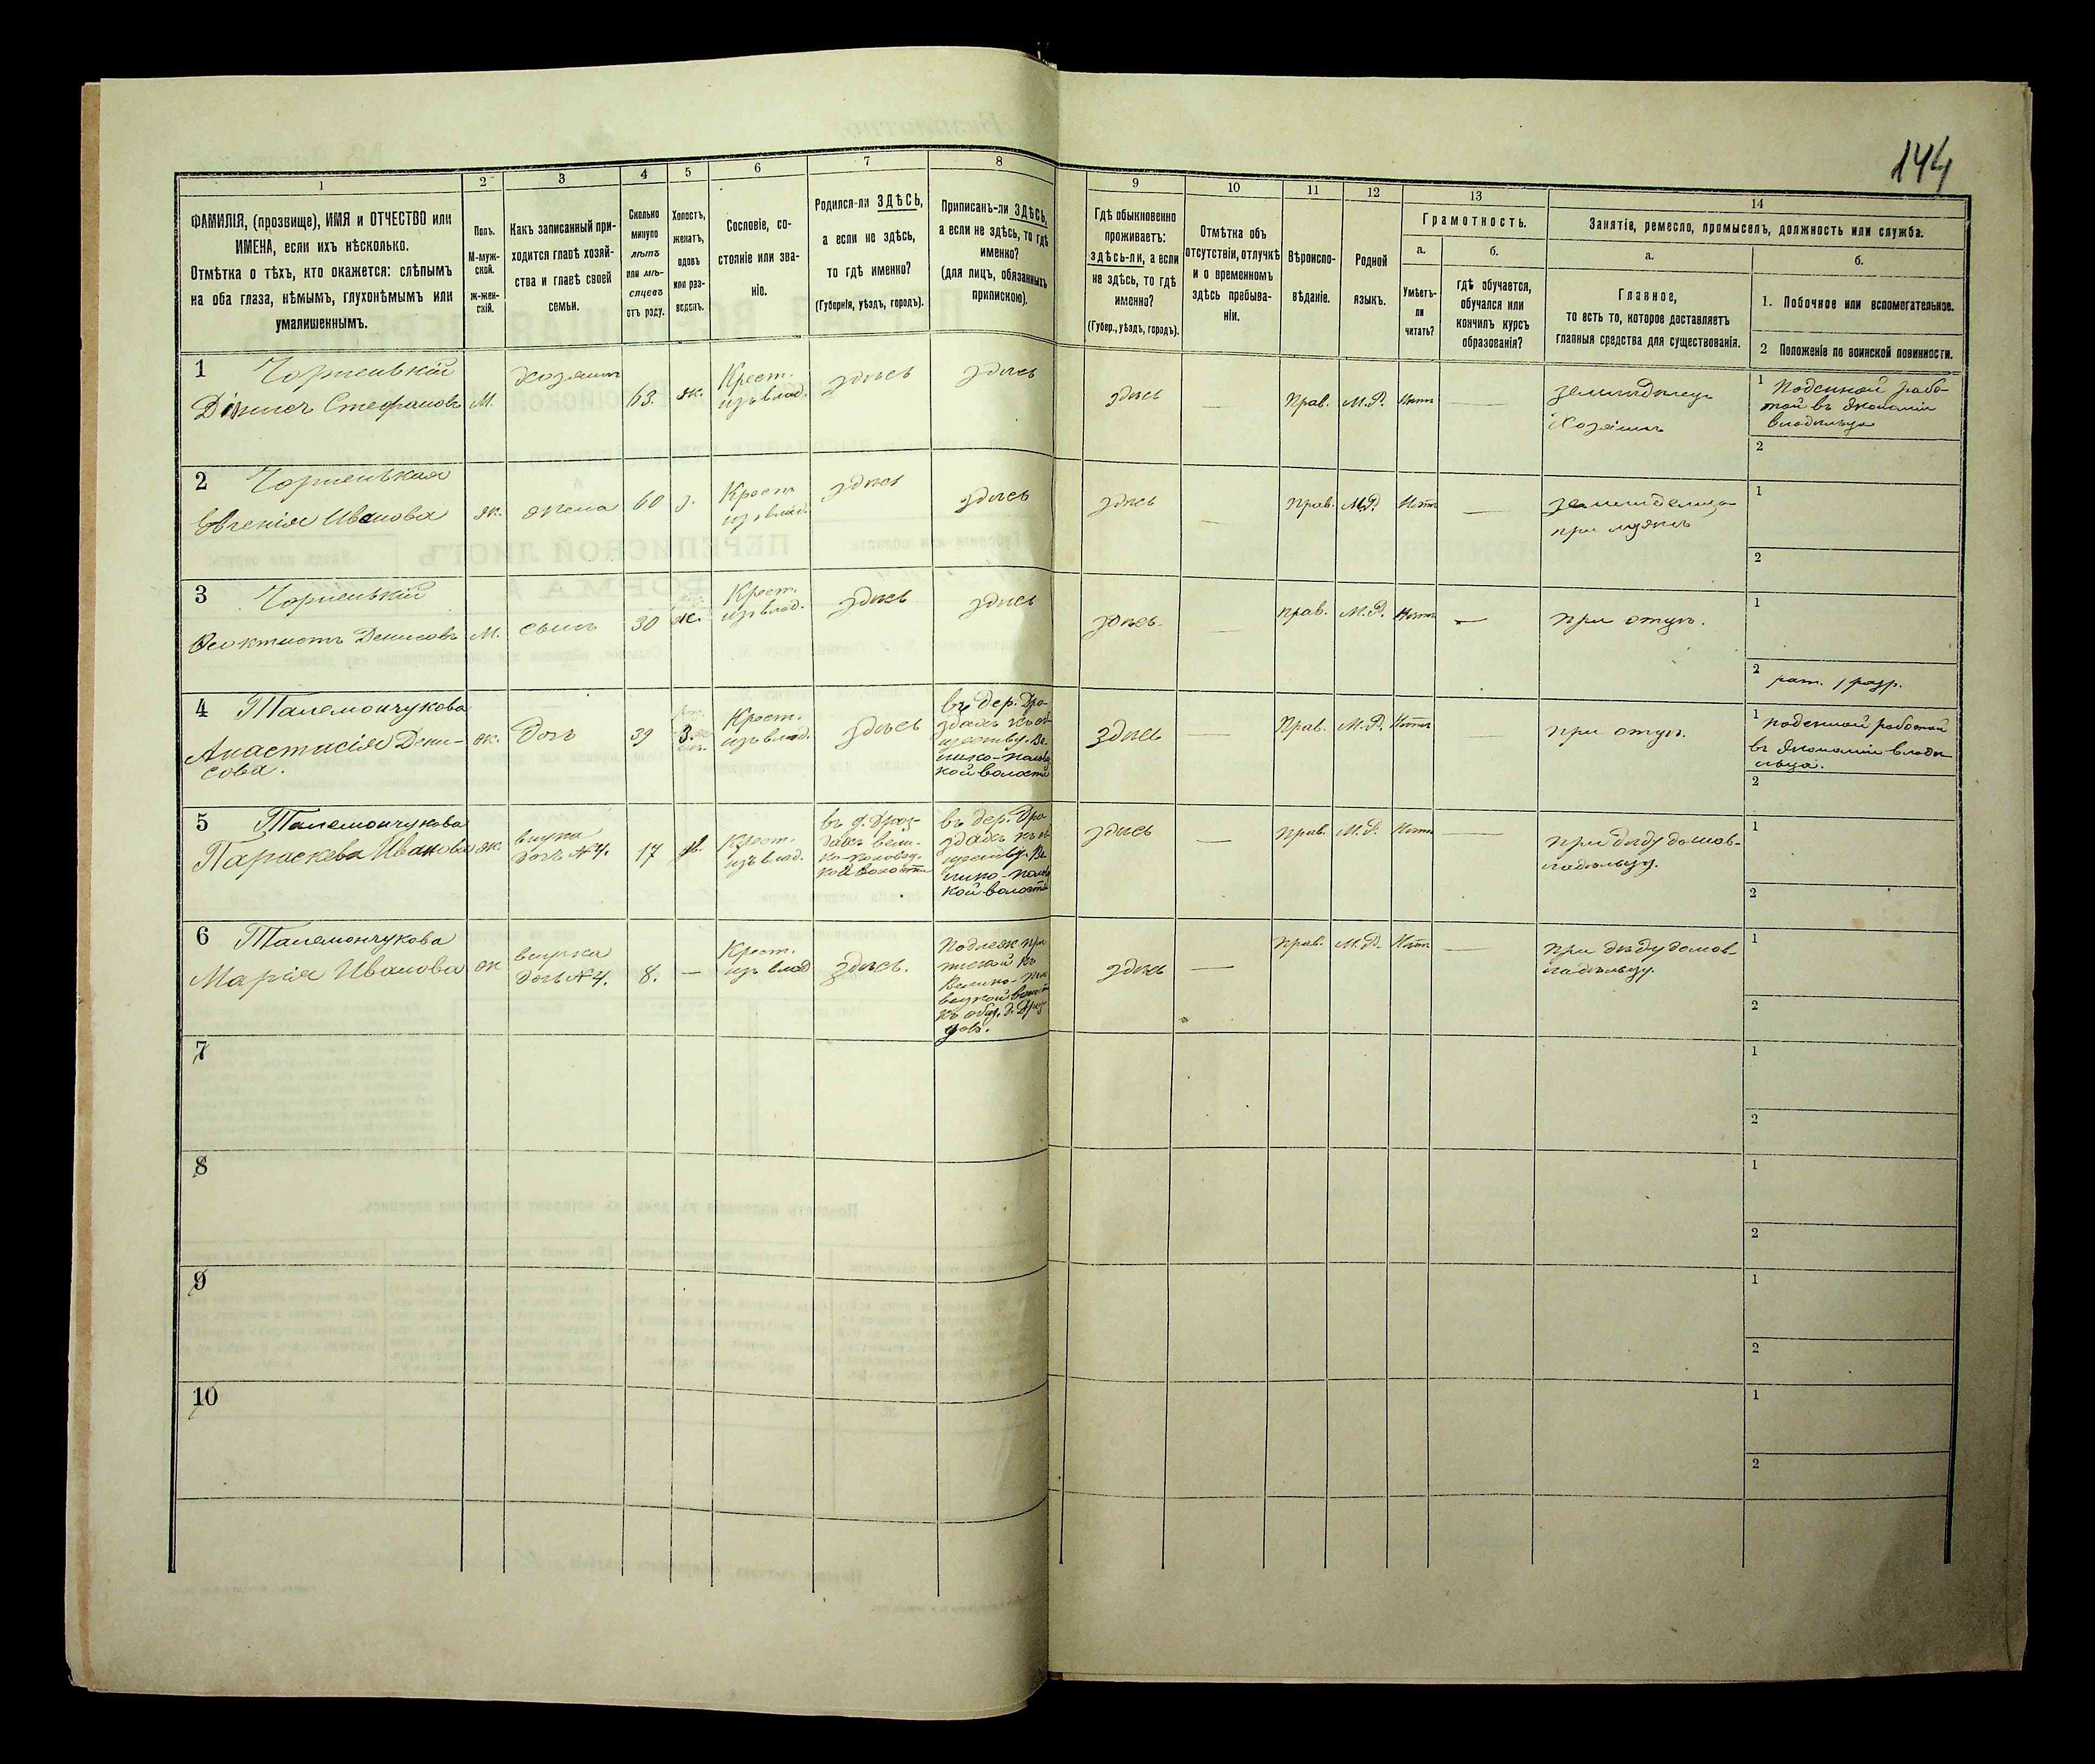 144
1
2
3
4
5
6
7
8
9
10
11
12
13
14
ФАМИЛІЯ, (прозвище), ИМЯ и ОТЧЕСТВО или
ИМЕНА, если ихъ нѣсколько.
Отмѣтка о тѣхъ, кто окажется: слѣпымъ
на оба глаза, нѣмымъ, глухонѣмымъ или
умалишеннымъ.
Полъ.
М-муж-
ской.
Ж-жен-
скій.
Какъ записанный при-
ходится главѣ хозяй-
ства и главѣ своей
семьи.
Сколько
минуло
лѣтъ
или мѣ-
сяцевъ
отъ роду.
Холостъ,
женатъ,
вдовъ
или раз-
веденъ.
Сословіе, со-
стояніе или зва-
ніе.
Родился-ли ЗДѢСЬ,
а если не здѣсь,
то гдѣ именно?
(Губернія, уѣздъ, городъ).
Приписанъ-ли ЗДѢСЬ,
а если не здѣсь, то гдѣ
именно?
(для лицъ, обязанныхъ
припискою).
Гдѣ обыкновенно
проживаетъ:
здѣсь-ли, а если
не здѣсь, то гдѣ
именно?
(Губер., уѣздъ, городъ).
Отмѣтка объ
отсутствіи, отлучкѣ
и о временномъ
здѣсь пребыва-
ніи.
Вѣроиспо-
вѣданіе.
Родной
языкъ.
Грамотность.
а.
Умѣетъ-
ли
читать?
б.
гдѣ обучается,
обучался или
кончилъ курсъ
образованія?
Занятіе, ремесло, промыселъ, должность или служба.
а.
Главное,
то есть то, которое доставляетъ
главныя средства для существованія.
б.
1. Побочное или вспомогательное.
2 Положеніе по воинской повинности.
1 Чорненькій
Стефановъ М. Хозяинъ 63. ж. Крест. изъ влад. здѣсь здѣсь здѣсь — Прав. М.Р. Нѣтъ —
Хозяинъ
1 Поденной рабо-
той въ экономіи
владѣльца
2
2 Чорненькая
Евгенія Иванова ж. жена 60 з. Крест. изъ влад. здѣсь здѣсь здѣсь — Прав. М.Р. Нѣтъ —
при мужѣ
1
2
3 Чорненькій
Феоктистъ Денисовъ М. сынъ 30 ж. Крест. изъ влад. здѣсь здѣсь здѣсь — прав. М.Р. Нѣтъ — при отцѣ.
1
2 рат. 1 разр.
4
Анастасія Дени-
сова. ж. дочь 39 з. Крест. изъ влад. здѣсь
въ дер. Дро-
здахъ къ об-
ществу. Ве-
лико-полов.
кой волости
здѣсь — Прав. М.Р. Нѣтъ — при отцѣ.
1 поденной работой
въ экономіи владѣ-
льца.
2
5
Параскева Иванова ж. внука
дочь №4. 17 дѣв. Крест. изъ влад.
въ д. Дроз-
дахъ Вели-
ко-половец.
кой волости
въ дер. Дро-
здахъ къ об-
ществу. Ве-
лико-полов
кой волости
здѣсь — прав. М.Р. Нѣтъ —
при дѣду домов-
ладѣльцу.
1
2
6
Марія Иванова ж внучка
дочь №4. 8. — Крест. изъ влад здѣсь.
Подлеж. при
пиской къ
кой волости
къ общ. д. Дроз
довъ.
здѣсь — прав. М.Р. Нѣтъ —
при дѣду домов-
ладѣльцу.
1
2
7
1
2
8
1
2
9
1
2
10
1
2